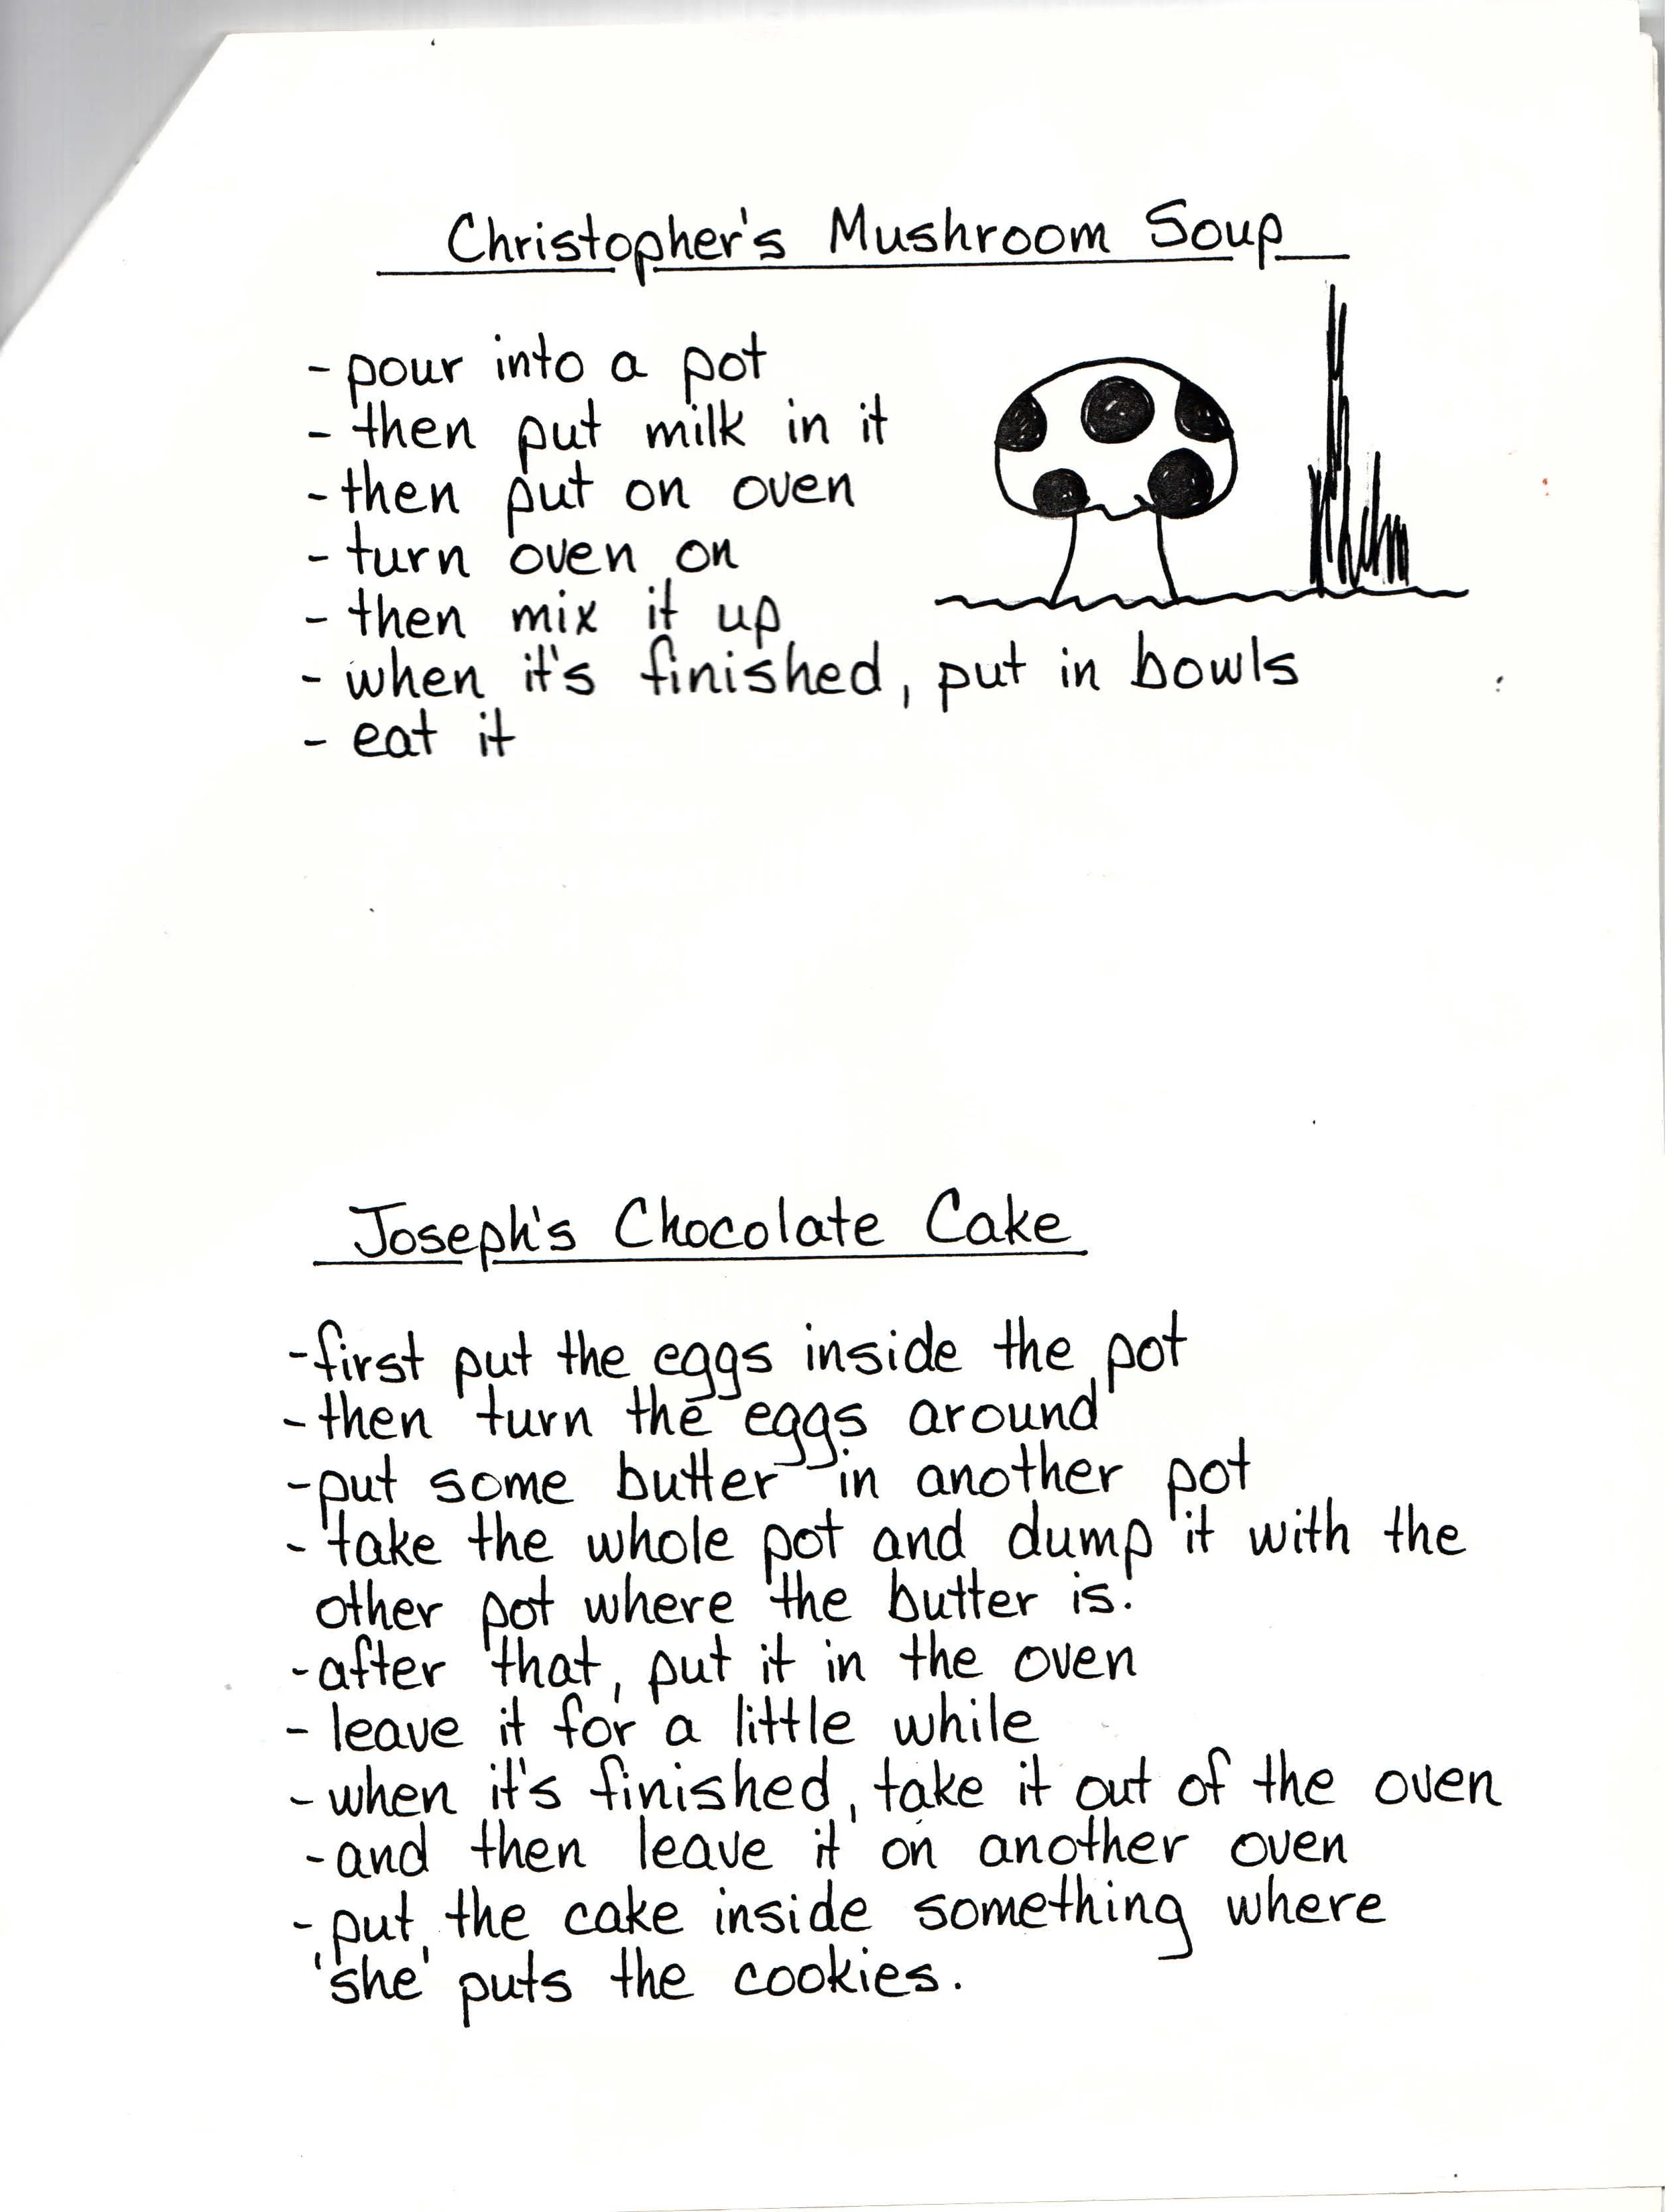 Christopher's Mushroom Soup
- pour into a pot
- then put milk in it
- then put on oven
- turn oven on
- then mix it up
- when it's finished, put in bowls
- eat it
Joseph's Chocolate Cake
- first put the eggs inside the pot
- then turn the eggs around
- put some butter in another pot
- take the whole pot and dump it with the
other pot where the butter is.
- after that, put it in the oven
- leave it for a little while
- when it's finished, take it out of the oven
- and then leave it on another oven
- put the cake inside something where
'she' puts the cookies.